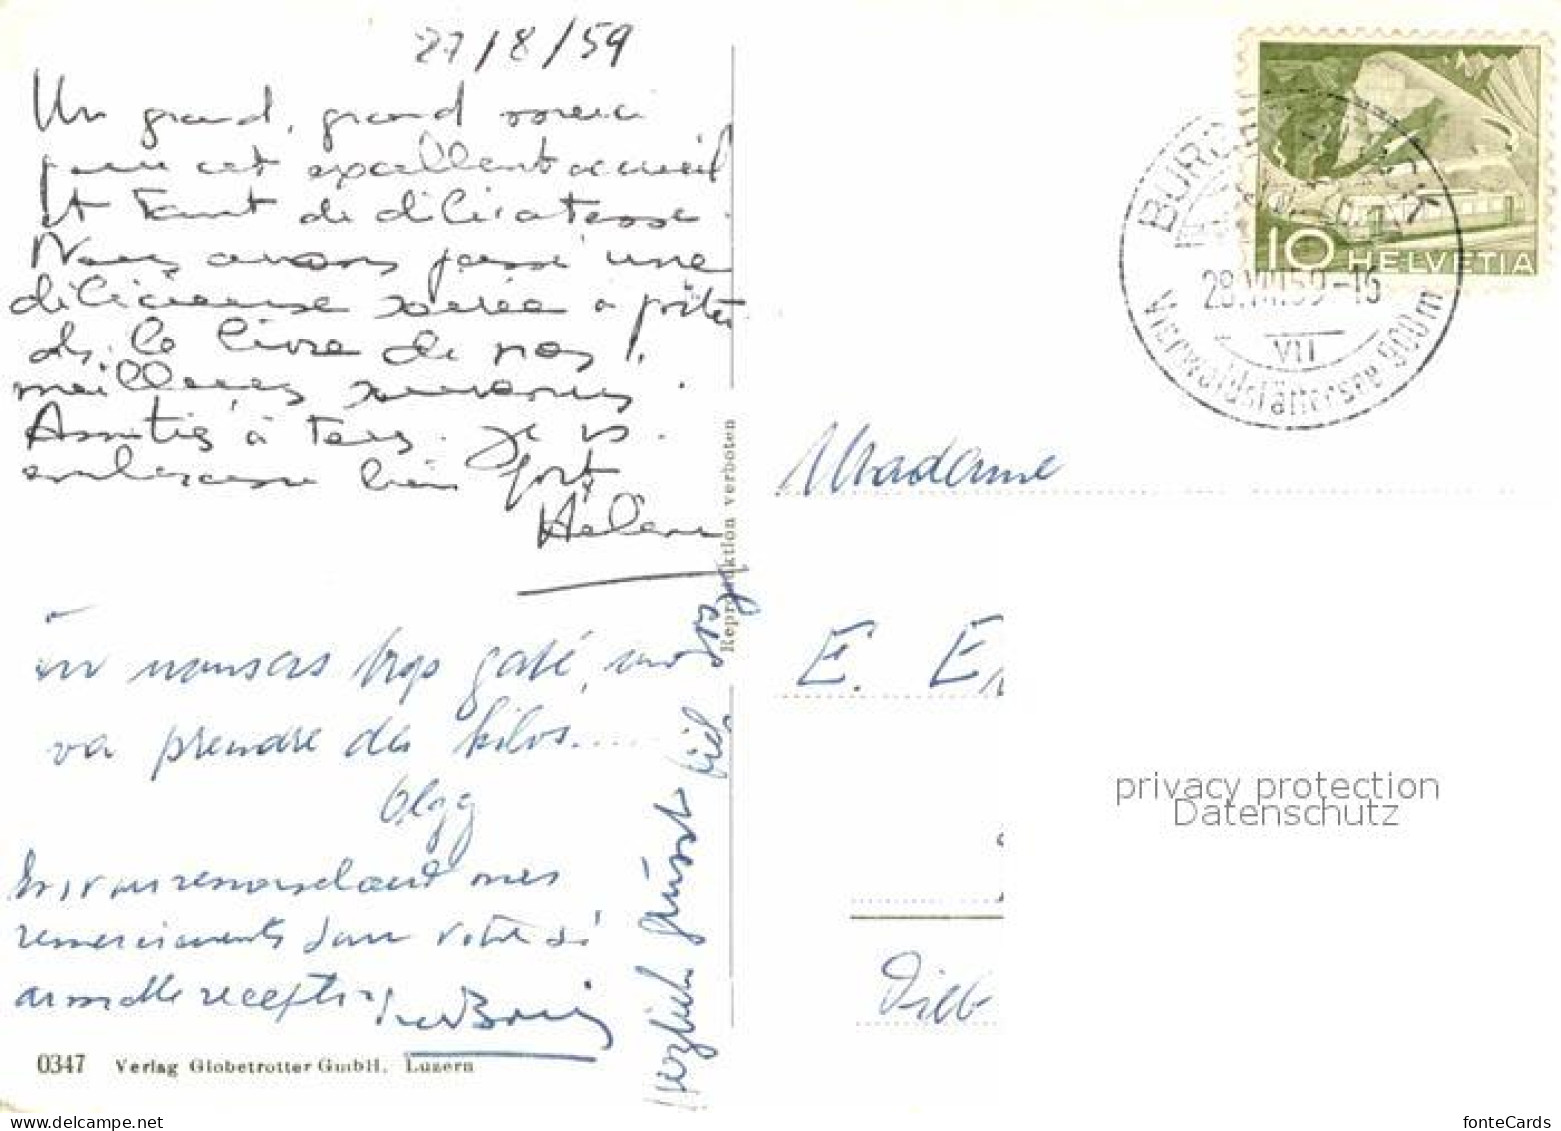 27/8/59
Un grand, grand merci
pour cet excellent accueil
et tant de délicatesse.
Nous avons passé une
délicieuse soirée à porter
ds. le livre de nos
meilleurs souvenirs.
Amitiés à tous. Je vs.
embrasse bien fort
Hélène
trop gaté,
va prendre des kilos.....
Olga
En vous renouvelant mes
remerciements pour votre si
aimable reception
Herzlich grüsst
Reproduktion verboten
0347 Verlag Globetrotter GmbH. Luzern
10 HELVETIA
BÜRGENSTOCK
28.VIII.59-16
VII
Vierwaldstättersee 900m
Madame
E. E
privacy protection
Datenschutz
www.delcampe.net
fonteCards